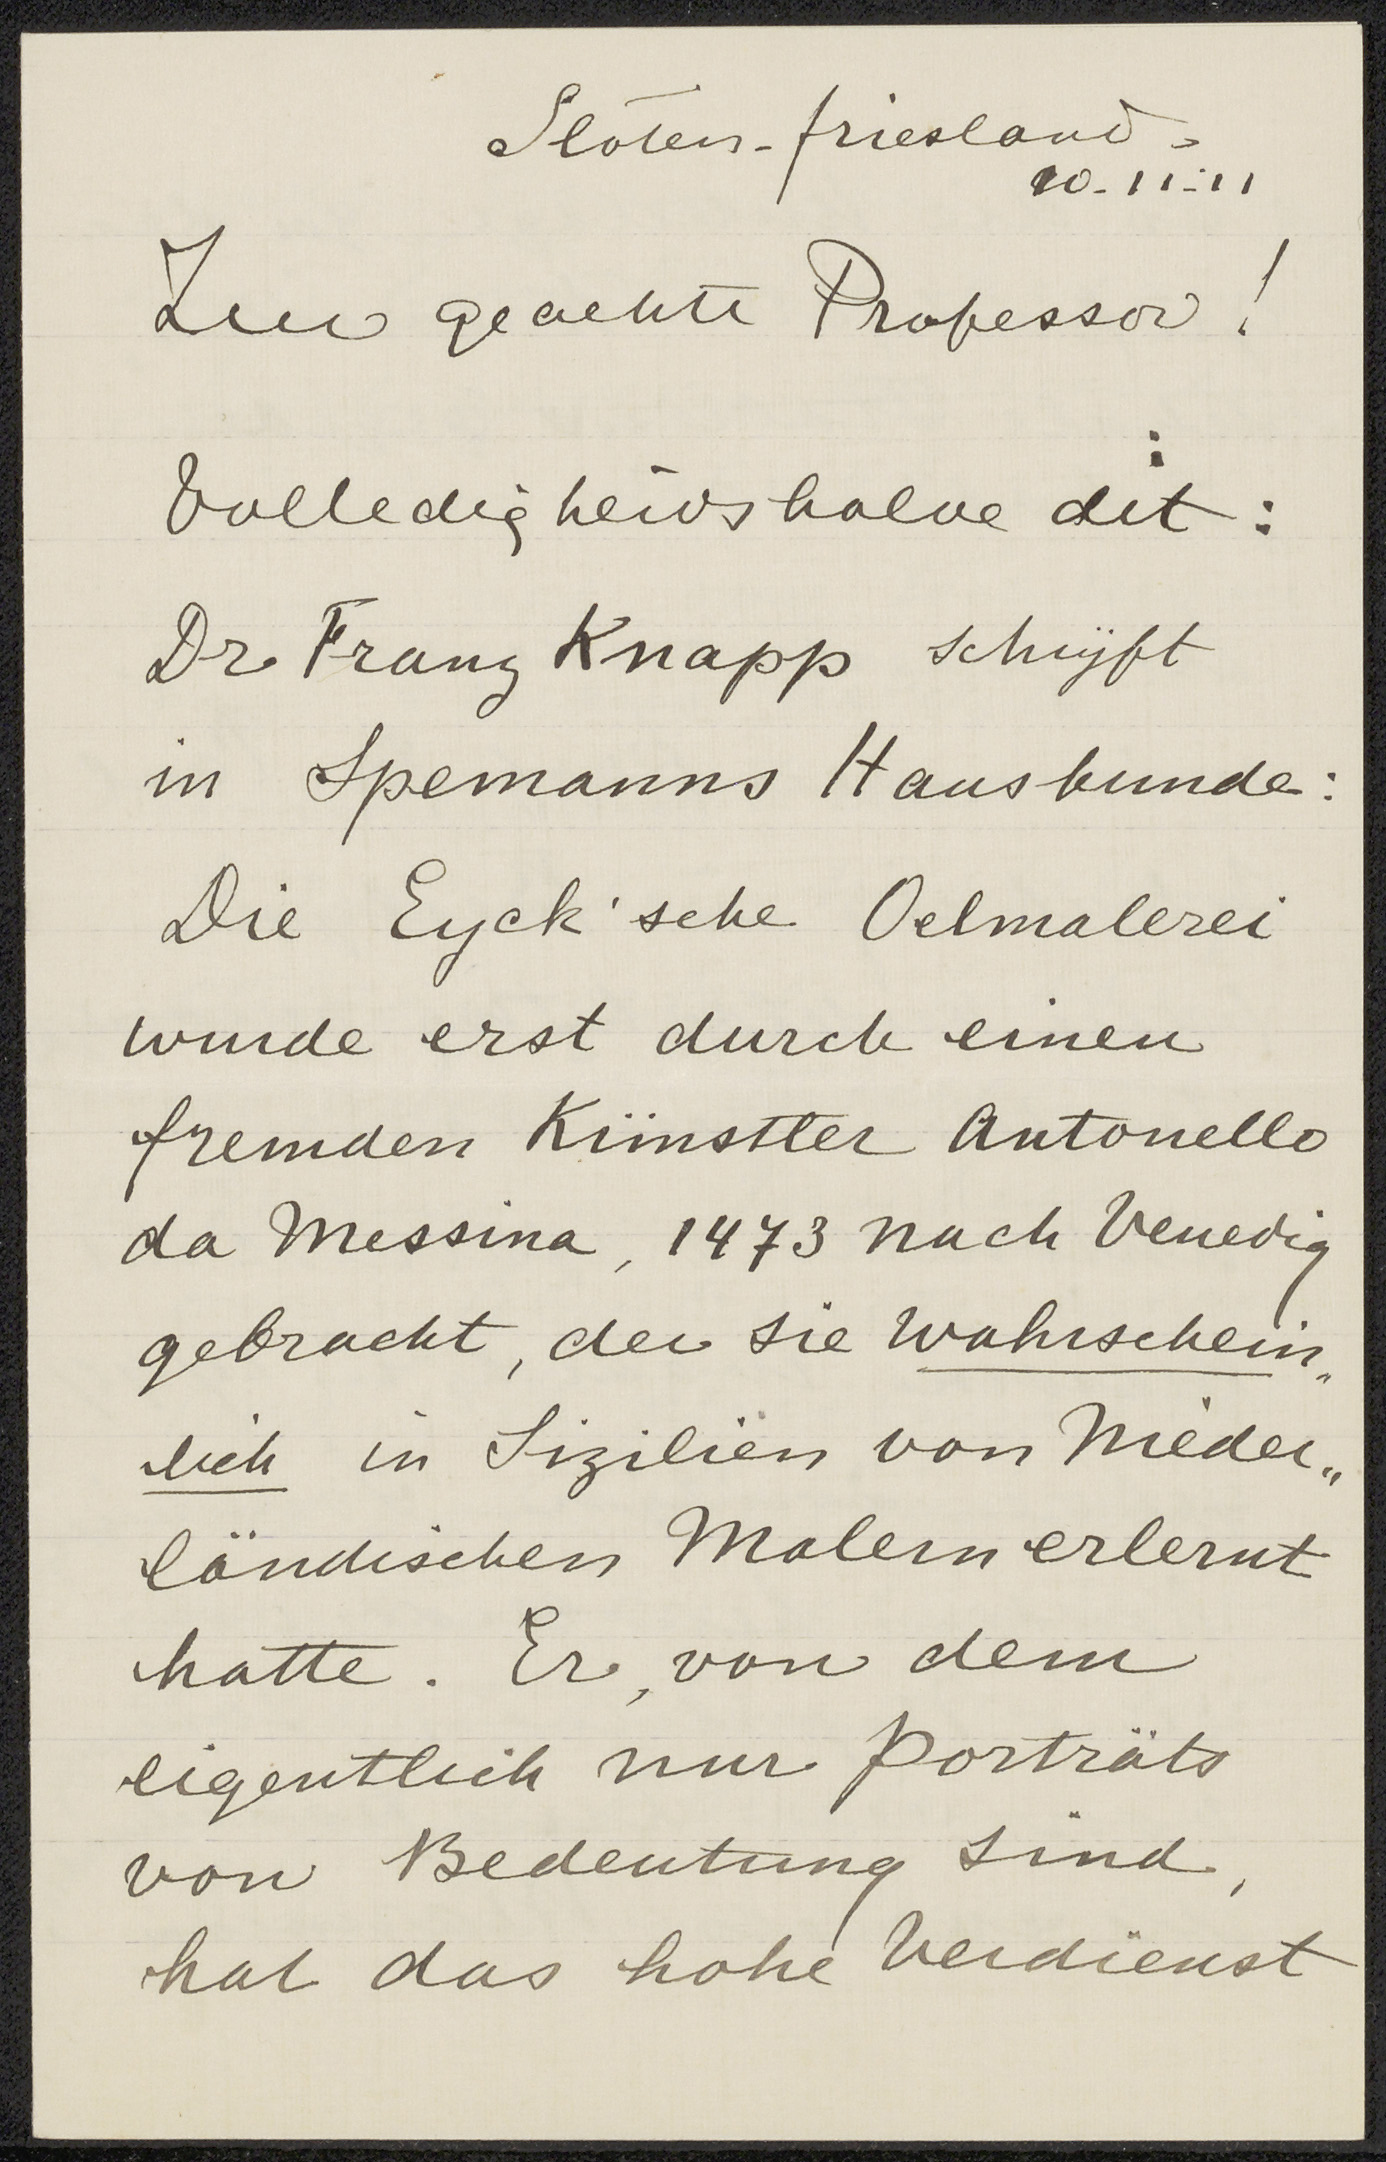 Sloten-friesland-
10-11-11
Zeer geachte Professor!
Volledigheidshalve dit:
Dr Franz Knapp schrijft
in Spemanns Hauskunde:
Die Eyck'sche Oelmalerei
wurde erst durch einen
fremden Künstler Antonello
da Messina, 1473 nach Venedig
gebracht, der sie wahrschein„
lich in Sizilien von Nieder„
ländischen Malern erlernt
hatte. Er, von dem
eigentlich nur Porträts
von Bedeutung sind,
hat das hohe Verdienst